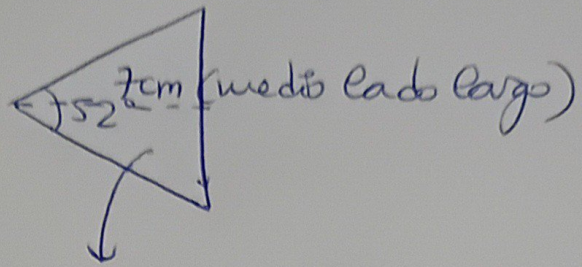 52 7cm (medio lado largo)